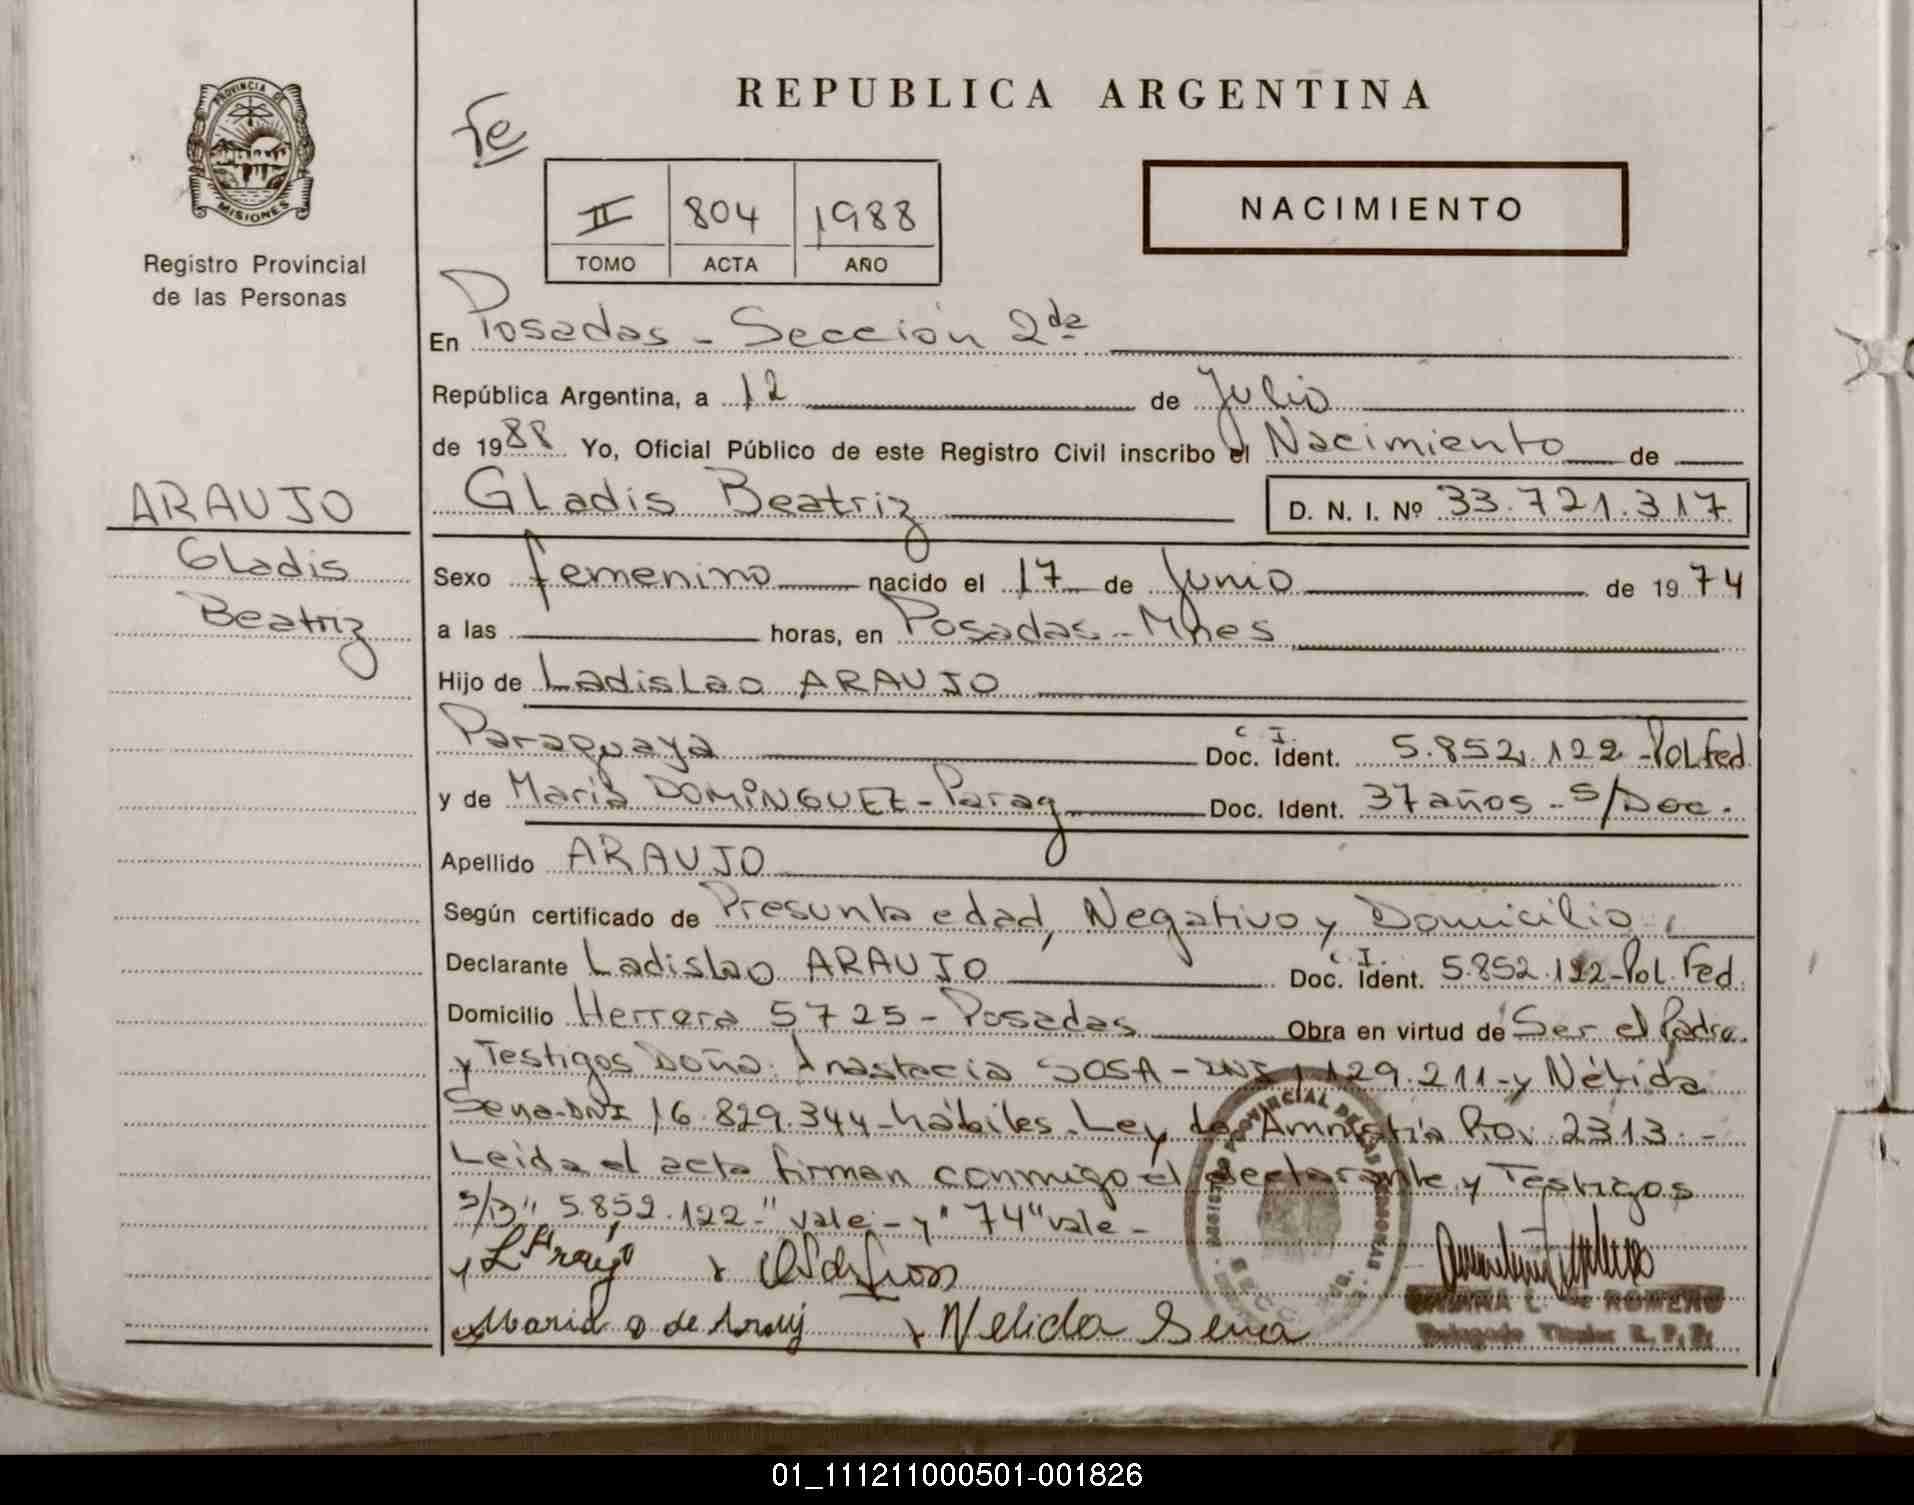 REPUBLICA ARGENTINA
Fe
PROVINCIA DE
MISIONES
Registro Provincial
de las Personas
II 804 1988
TOMO ACTA AÑO
NACIMIENTO
En Posadas - Sección 2da
República Argentina, a 12 de Julio
de 1988 Yo, Oficial Público de este Registro Civil inscribo el Nacimiento de
ARAUJO
Gladis
Beatriz
GLadis Beatriz D. N. I. Nº 33.721.317
Sexo femenino nacido el 17 de Junio de 1974
a las horas, en Posadas - Mnes
Hijo de LadisLao ARAUJO
Paraguaya C. I. Doc. Ident. 5.852.122 - Pol Fed.
y de María DOMINGUEZ - Parag Doc. Ident. 37 años - s/Doc.
Apellido ARAUJO
Según certificado de Presunta edad, Negativo y Domicilio
Declarante Ladislao ARAUJO C. I. Doc. Ident. 5.852.122 - Pol. Fed.
Domicilio Herrera 5725 - Posadas Obra en virtud de Ser el Padre.
y Testigos Doña: Anastacia SOSA - DNI 1.129.211 - y Nélida
Sena - DNI 16.829.344 - hábiles. Ley de Amnistía Pcial 2313. -
Leida el acta firman conmigo el declarante y Testigos
s/B " 5.852.122 - " vale - y " 74 " vale -
L Araujo
Maria D de Arauj Nelida Sena
L. de ROMERO
Delegado Titular R. P. P.
01_111211000501-001826